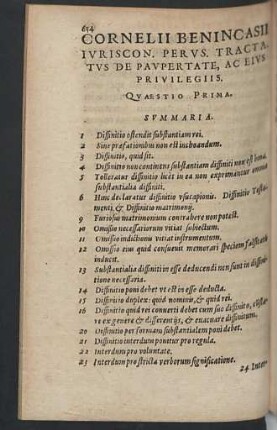 654
CORNELII BENINCASII
IVRISCON. PERVS. TRACTA
TVS DE PAVPERTATE, AC EIVS
PRIVILEGIIS.
QVAESTIO PRIMA.
SVMMARIA.
1 Diffinitio ostendit substantiam rei.
2 Sine præfationibus non est inchoandum.
3 Diffinitio, quid sit.
4 Diffinitio non continens substantiam diffiniti non est bona.
5 Toleratur diffinitio licet in ea non exprimantur omnia
substantialia diffiniti.
6 Hinc declaratur diffinitio vsucapionis. Diffinitio Testa-
menti, & Diffinitio matrimonij.
9 Furiosus matrimonium contrahere non potest.
10 Omissio necessariorum vitiat subiectum.
11 Omissio indictionis vitiat instrumentum.
12 Omissio eius quod consueuit memorari speciem falsitatis
inducit.
13 Substantialia diffiniti in esse deducendi non sunt in diffini-
tione necessaria.
14 Diffinitio poni debet vt est in esse deducta.
15 Diffinitio duplex: quid nominis, & quid rei.
16 Diffinitio quid rei conuerti debet cum suo diffinito,
re ex genere & differentijs, & euacuare diffinitum.
20 Diffinitio per
substantialem poni debet.
21 Diffinitio interdum ponitur pro regula.
22 Interdum pro voluntate.
23 Interdum pro stricta verborum significatione.
24 Inter-